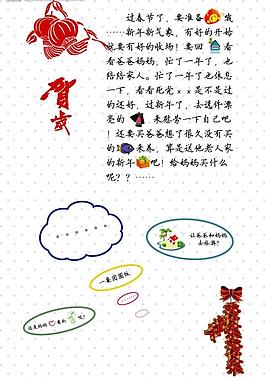 过春节了，要准备哦
……新年新气象，有好的开始
就要有好的收场！要回看
看爸爸妈妈，忙了一年了，也
陪陪家人。忙了一年了也休息
一下，看看死党xx是不是过
的还好，过新年了，去选件漂
亮的来慰劳一下自己吧
！还要买爸爸想了很久没有买
的来养，算是送他老人家
的新年吧！给妈妈买什么
呢？？……
贺
岁
……
让爸爸和妈妈
去旅游？
一来团团队
还是妈妈爱看的呢？